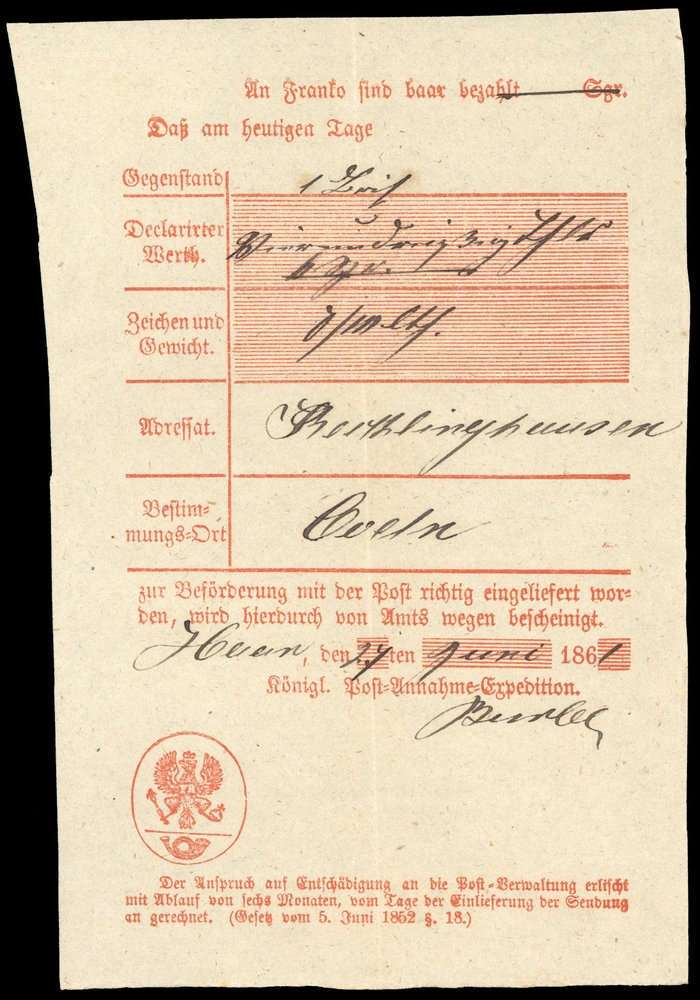 An Franko sind baar bezahlt Sgr.
Daß am heutigen Tage
Gegenstand 1 Brief
Declarirter
Werth.
Vierunddreißig Thlr
6 Sgr.
Zeichen und
Gewicht.
Adressat. Recklinghausen
Bestim-
mungs-Ort
Coeln
zur Beförderung mit der Post richtig eingeliefert wor-
den, wird hierdurch von Amts wegen bescheinigt.
Haan, den 27ten Juni 1861
Königl. Post-Annahme-Expedition.
Der Anspruch auf Entschädigung an die Post-Verwaltung erlischt
mit Ablauf von sechs Monaten, vom Tage der Einlieferung der Sendung
an gerechnet. (Gesetz vom 5. Juni 1852 §. 18.)